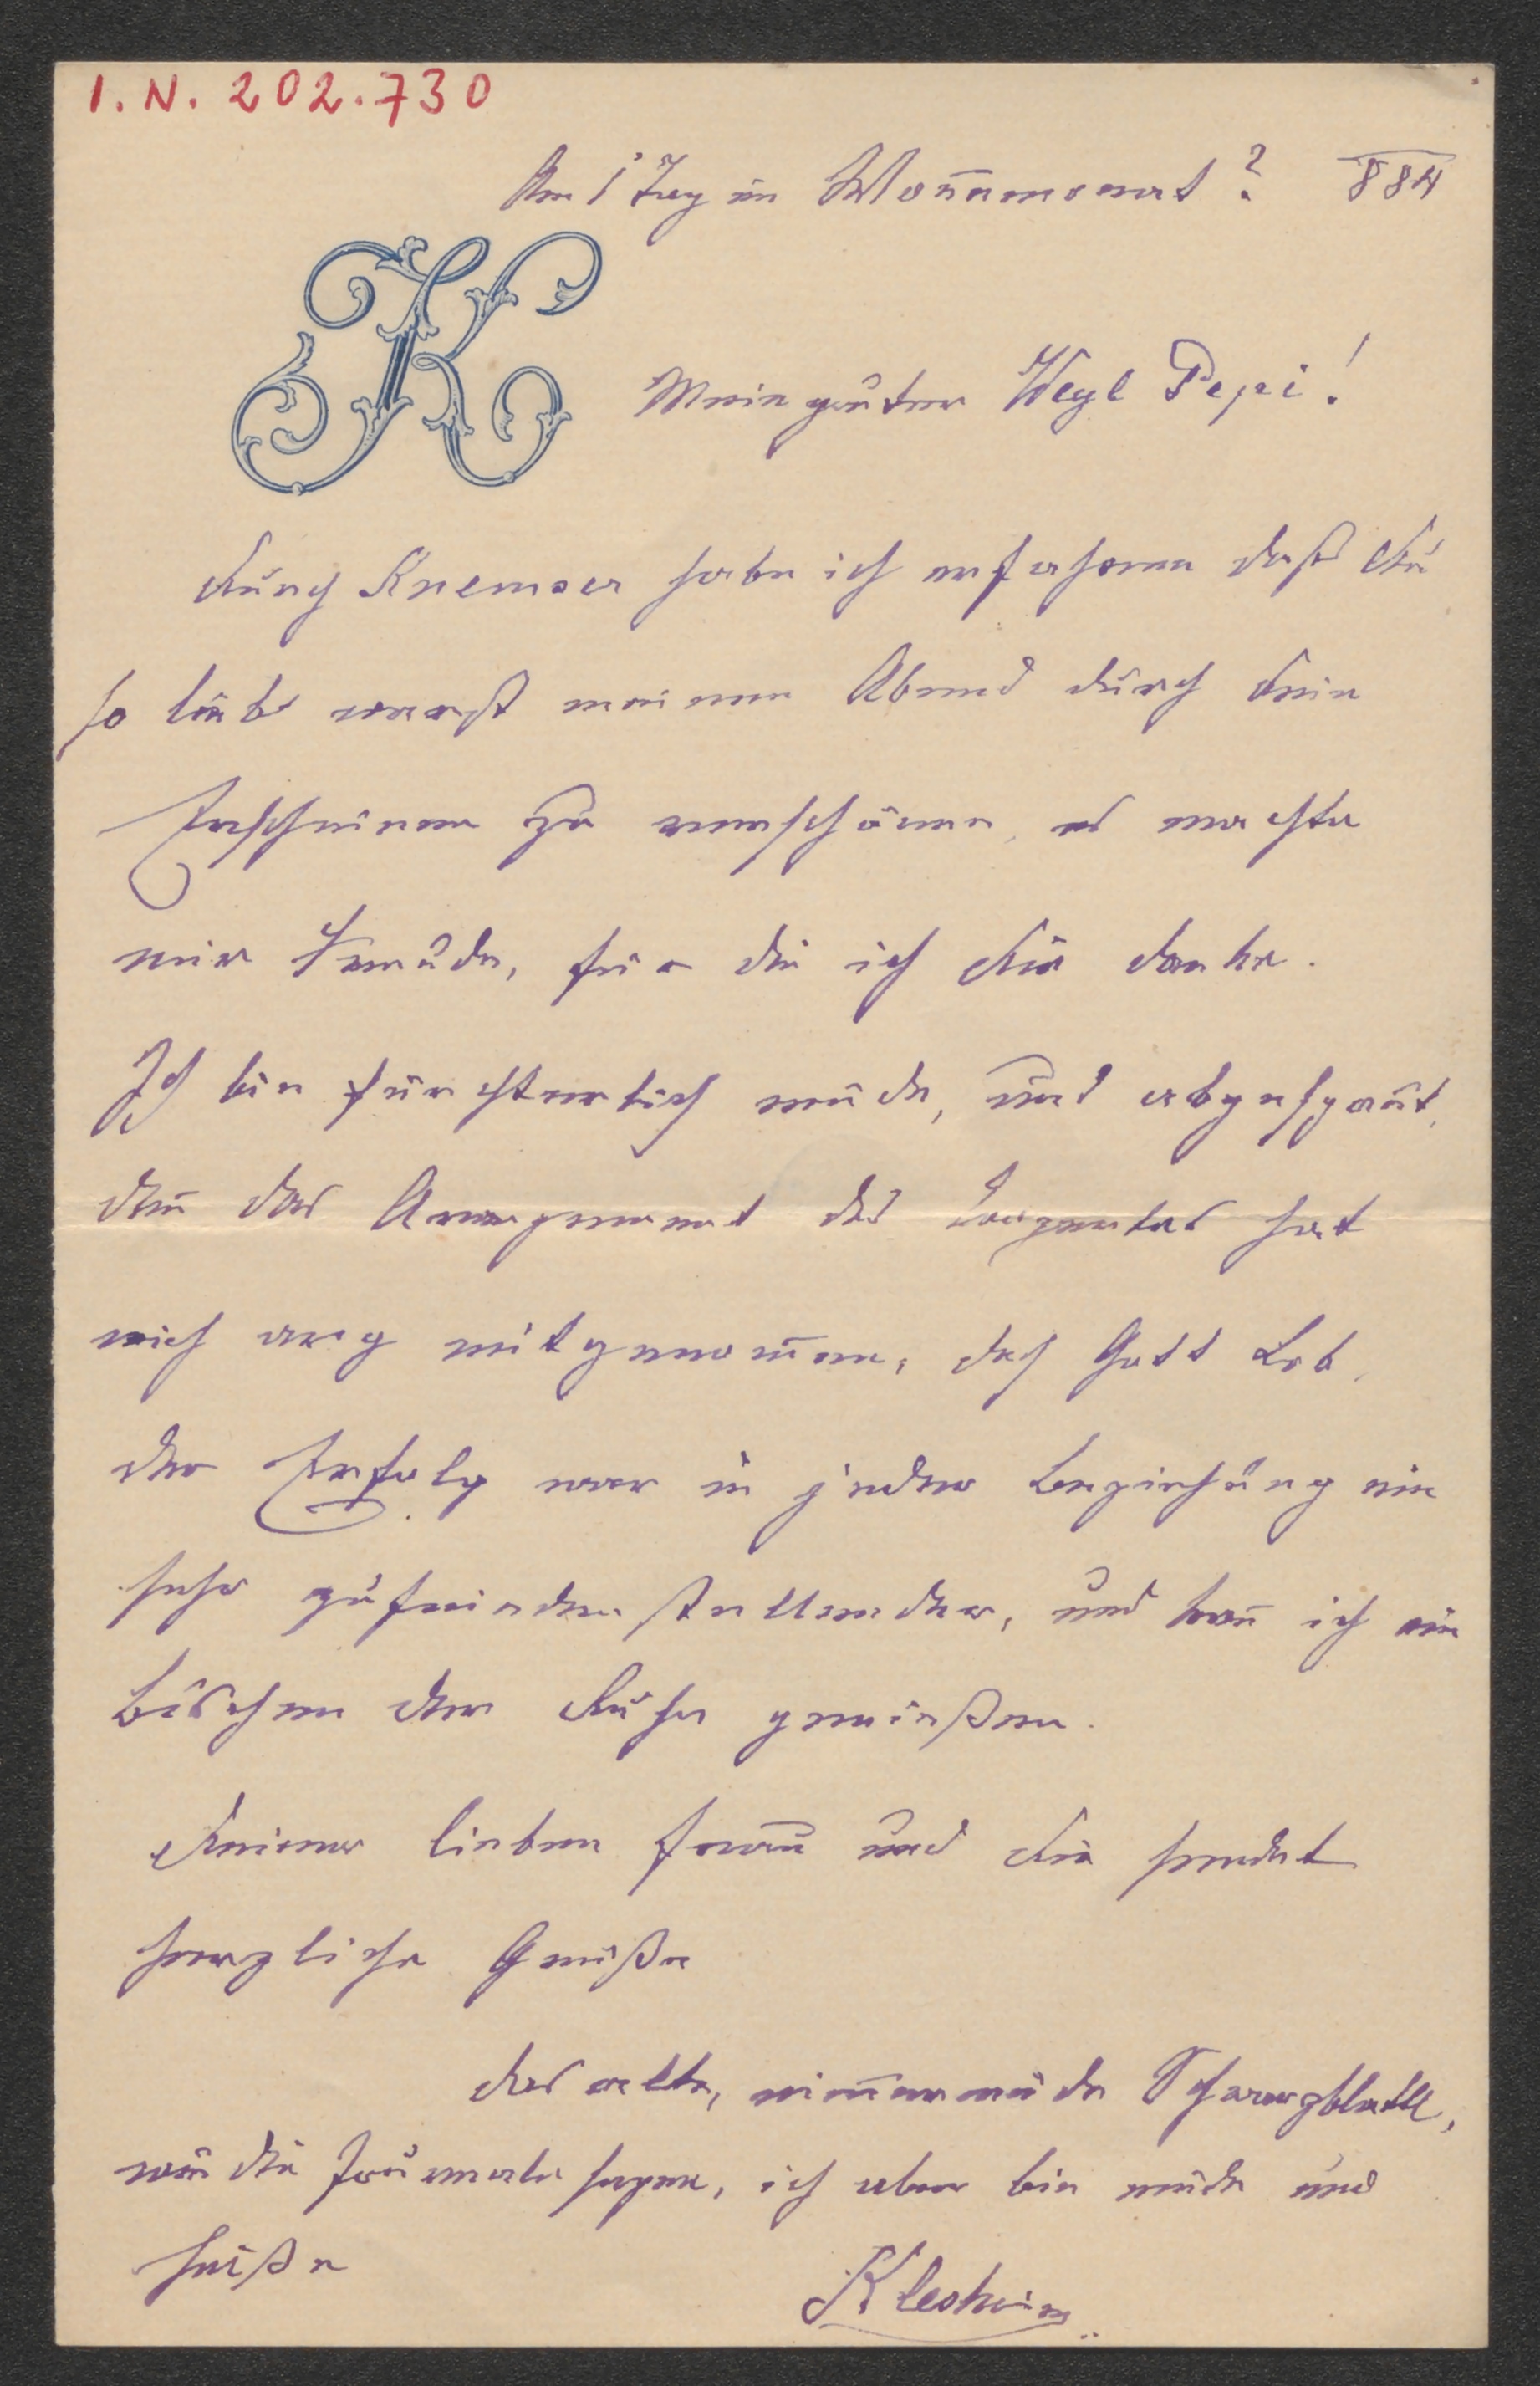 I.N. 202.730
Am 1 Tag im Wonnemonat? 884
K
Mein guter Weyl Pepi!
Durch Kremser habe ich erfahren daß Du
so lieb warst meinen Abend durch Dein
Erscheinen zu verschönen, es machte
mir Freude, für die ich Dir danke.
Ich bin fürchterlich müde, und abgespannt,
den̄ das Arrangement des Conzertes hat
mich arg mitgenom̄en, doch Gott Lob,
der Erfolg war in jeder Beziehung ein
sehr zufriedenstellender, und kan̄ ich ein
bischen der Ruhe genießen.
Deiner lieben Frau und Dir sendet
herzliche Grüße
das alte, nim̄ermüde Schwarzblattl,
wie die Journale sagen, ich aber bin müde und
heiße
Klesheim